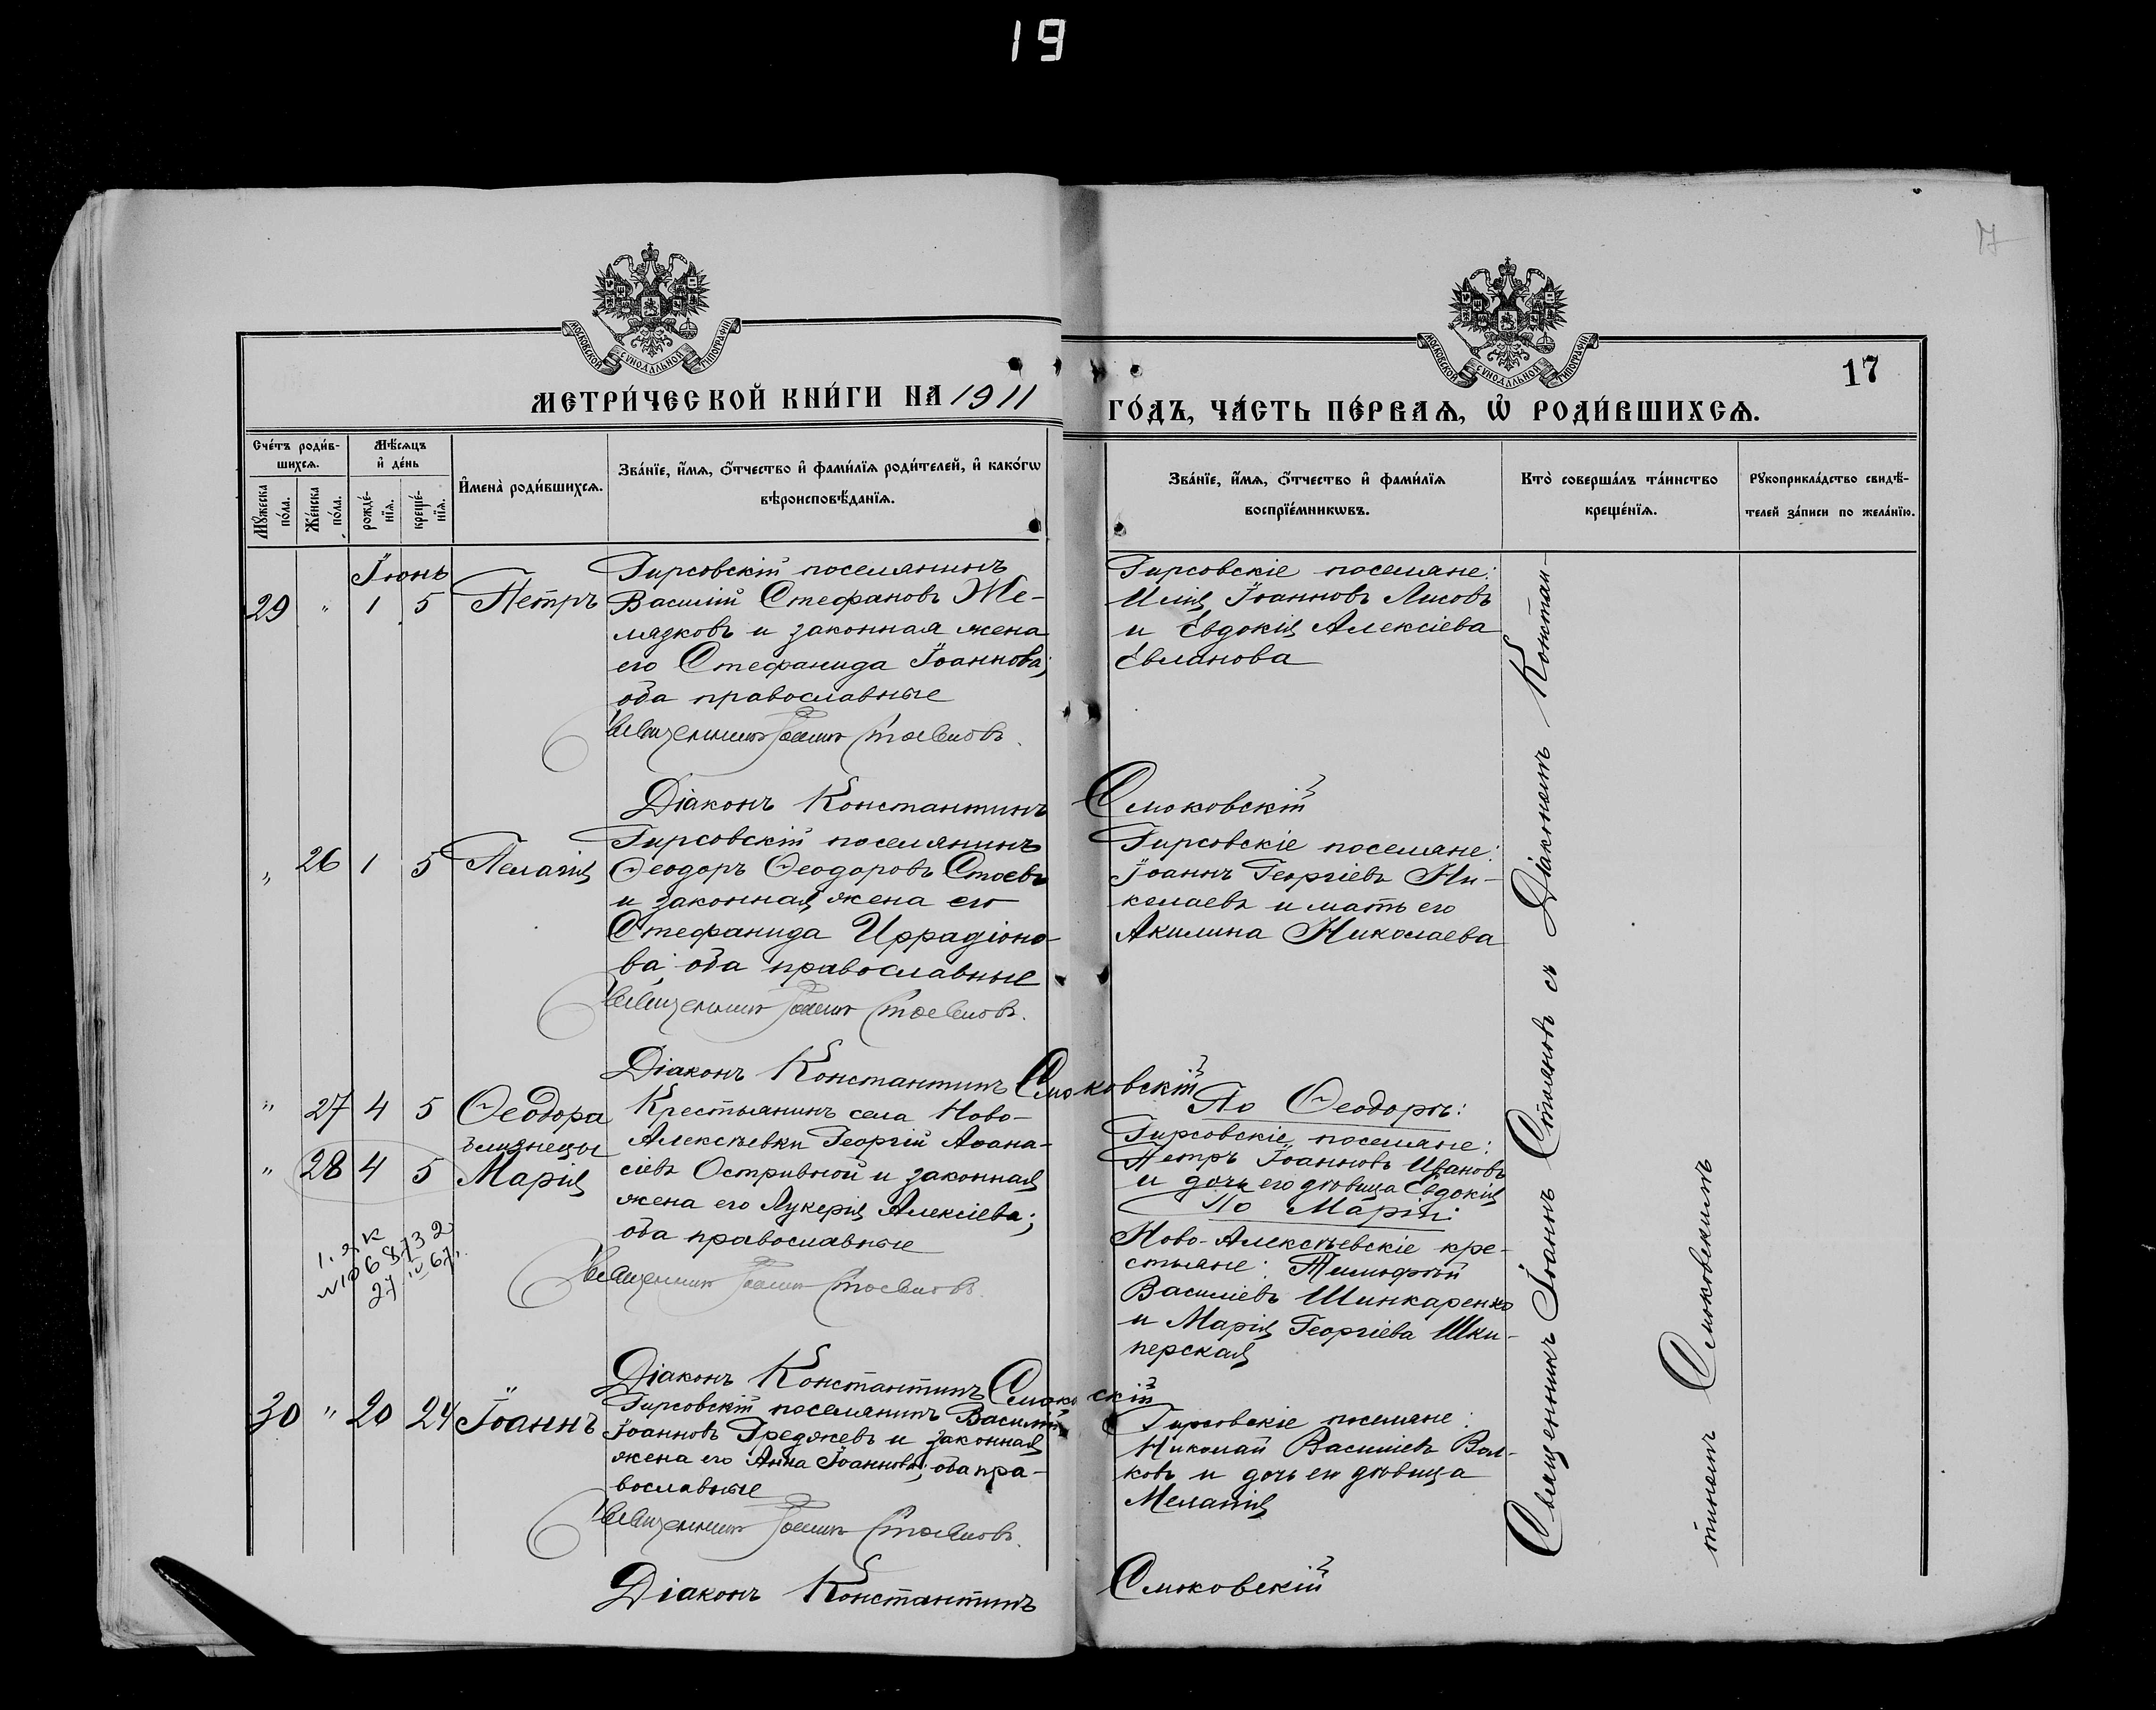 19
17
МОСКОВСКОЙ СѴНОДАЛЬНОЙ ТИПОГРАФІИ
МОСКОВСКОЙ СѴНОДАЛЬНОЙ ТИПОГРАФІИ
17
МЕТРИ́ЧЕСКОЙ КНИ́ГИ НА 1911
ГО́ДЪ, ЧА́СТЬ ПЕ́РВАѦ, Ѡ҆ РОДИ́ВШИХСѦ.
Сче́тъ роди́в-
шихсѧ.
Мѣ́сѧцъ
и҆ де́нь
Мꙋ́жеска
по́ла.
Же́нска
по́ла.
рожде́-
нїѧ.
креще́-
нїѧ.
И҆мена̀ роди́вшихсѧ.
Зва́нїе, и҆́мѧ, ѻ҆́тчество и҆ фами́лїѧ роди́телей, и҆ како́гѡ
вѣроисповѣ́данїѧ.
Зва́нїе, и҆́мѧ, ѻ҆́тчество и҆ фами́лїѧ
воспрїе́мникѡвъ.
Кто̀ соверша́лъ та́инство
креще́нїѧ.
Рꙋкоприкла́дство свидѣ́-
телей за́писи по жела́нїю.
Іюнь
29 " 1 5 Петръ
Гирсовскій поселянинъ
Василій Стефановъ Же-
лязковъ и законная жена
его Стефанида Іоаннова;
оба православные
Священникъ Іоаннъ Стояновъ.
Діаконъ Константинъ Смоковскій
Гирсовскіе поселяне:
Илія Іоанновъ Лисовъ
и Евдокія Алексіева
Евланова
" 26 1 5 Пелагія
Гирсовскій поселянинъ
Ѳеодоръ Ѳеодоровъ Стоевъ
и законная жена его
Стефанида Иррадіоно-
ва; оба православные
Священникъ Іоаннъ Стояновъ.
Діаконъ Константинъ Смоковскій
Гирсовскіе поселяне:
Іоаннъ Георгіевъ Ни-
колаевъ и мать его
Акилина Николаева
" 27 4 5 Ѳеодора
близнецы
" 28 4 5 Марія
Крестьянинъ села Ново-
Алексѣевки Георгій Аѳана-
сіевъ Остривной и законная
жена его Лукерія Алексіева;
оба православные
Священникъ Іоаннъ Стояновъ.
Діаконъ Константинъ Смоковскій
По Ѳеодорѣ:
Гирсовскіе поселяне:
Петръ Іоанновъ Ивановъ
и дочь его дѣвица Евдокія
По Маріи:
Ново-Алексѣевскіе кре-
стьяне: Тимофѣй
Василіевъ Шинкаренко
и Марія Георгіева Шки-
перская
27 IV 67.
30 " 20 24 Іоаннъ
Гирсовскій поселянинъ Василій
Іоанновъ Греджевъ и законная
жена его Анна Іоаннова; оба пра-
вославные
Священникъ Іоаннъ Стояновъ.
Діаконъ Константинъ Смоковскій
Гирсовскіе поселяне:
Николай Василіевъ Вол-
ковъ и дочь его дѣвица
Меланія
Священникъ Іоаннъ Стояновъ съ Діакономъ Констан-
тиномъ Смоковскимъ